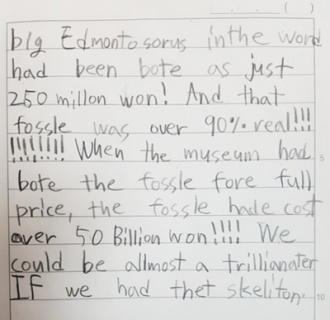 big Edmonto sorus inthe word
had been bote as just
250 millon won! And that
fossle was over 90% real!!!
!!!!!!!! When the museum had
bote the fossle fore full
price, the fossle hade cost
over 50 Billion won!!!! We
could be allmost a trillianater
IF we had thet skeliton.